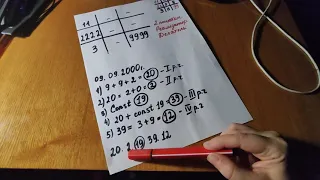 11 - -
2222 - -
3 - 9999
09.09.2000г.
1) 9+9+2=20 - I р.ч
2) 20=2+0=2 - II р.ч
3) Const 19
4) 20+const 19=39 - III р.ч
5) 39=3+9=12 - IV р.ч
20. 2. 19 39. 12